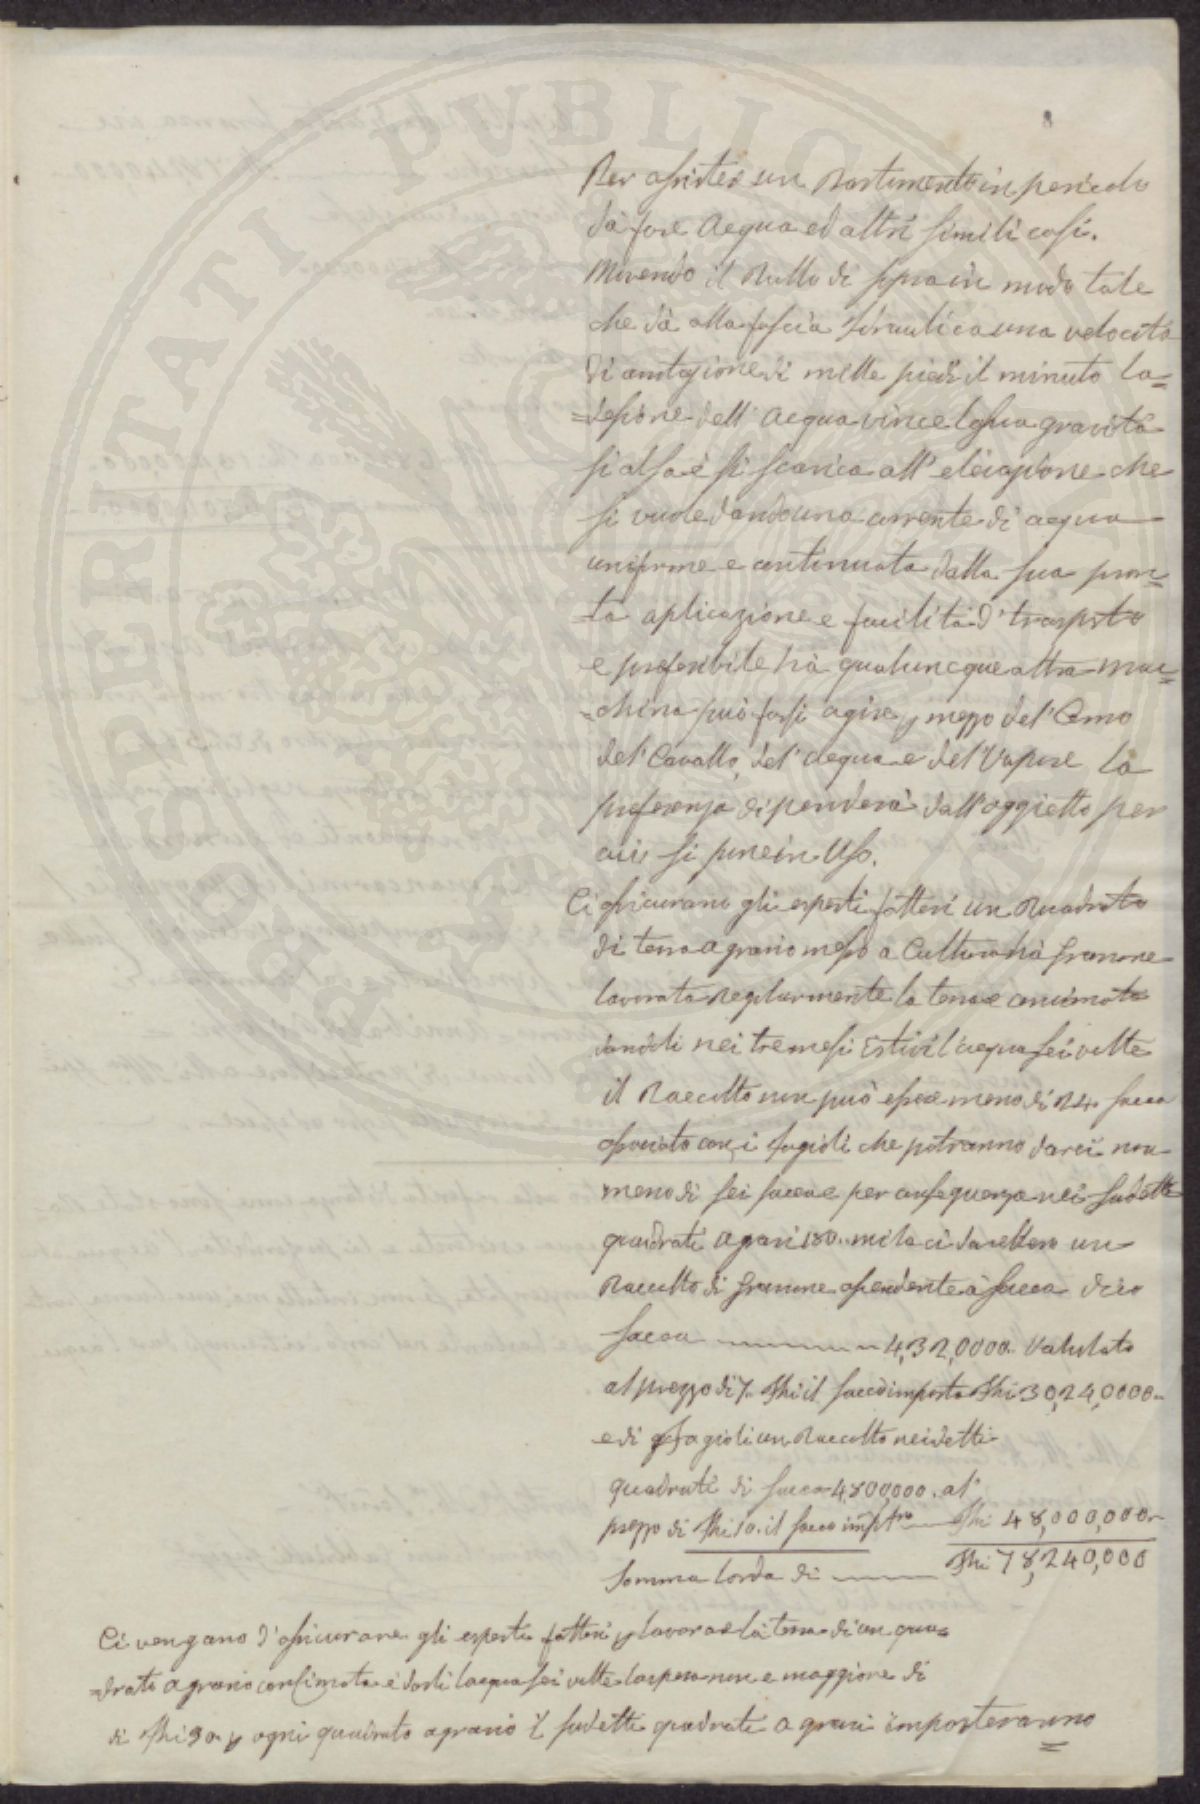 8
Per assister un Bastimento in pericolo
da fare Acqua ed altri simili casi.
Movendo il Rullo di sopra in modo tale
che dà alla fascia Idraulica una velocità
di rotazione di mille piedi il minuto la=
=desione dell' acqua vince la sua gravità
si alsa e si scarica all' elevazione che
si vuole dando una corrente di acqua
uniforme e continuata dalla sua pron=
ta aplicazione e facilità di trasporto
e preferibile hà qualuncque altra mac=
=china può farsi agire p mezzo del' Omo
del' Cavallo, del' acqua e del' Vapore la
preferenza dipenderà dall' oggietto per
cui si pone in Uso.
Ci assicurano gli esperti fattori un Quadrato
di terra agrario messo a Cultura hà Granone
lavorata regolarmente la terra e concimata
dandoli nei tre mesi Estivi l'acqua sei volte
il Raccolto non può essere meno di 24 sacca
associato con i fagioli che potranno darci non
meno di sei sacca e per conseguenza nei sudetti
quadrati agrari 180.. mila ci darebbero un
Raccolto di Granone ascendente à sacca dico
sacca 4,32,0000. Valutato
al prezzo di 7. Shi il sacco importa Shi 30,24,0000..
e di fagioli un Raccolto nei detti
quadrati di sacca 4.800,000. al
prezzo di Shi 10. il sacco imptro Shi 48,000,000..
Somma lorda di Shi 78,240,000
Ci vengano d'assicurare gli esperti fattori p lavorare la terra di un qua=
=drato agrario concimata e darli l'acqua sei volte la spesa non e maggiore di
di Shi 90.. p ogni quadrato agrario i sudetti quadrati agrari importeranno